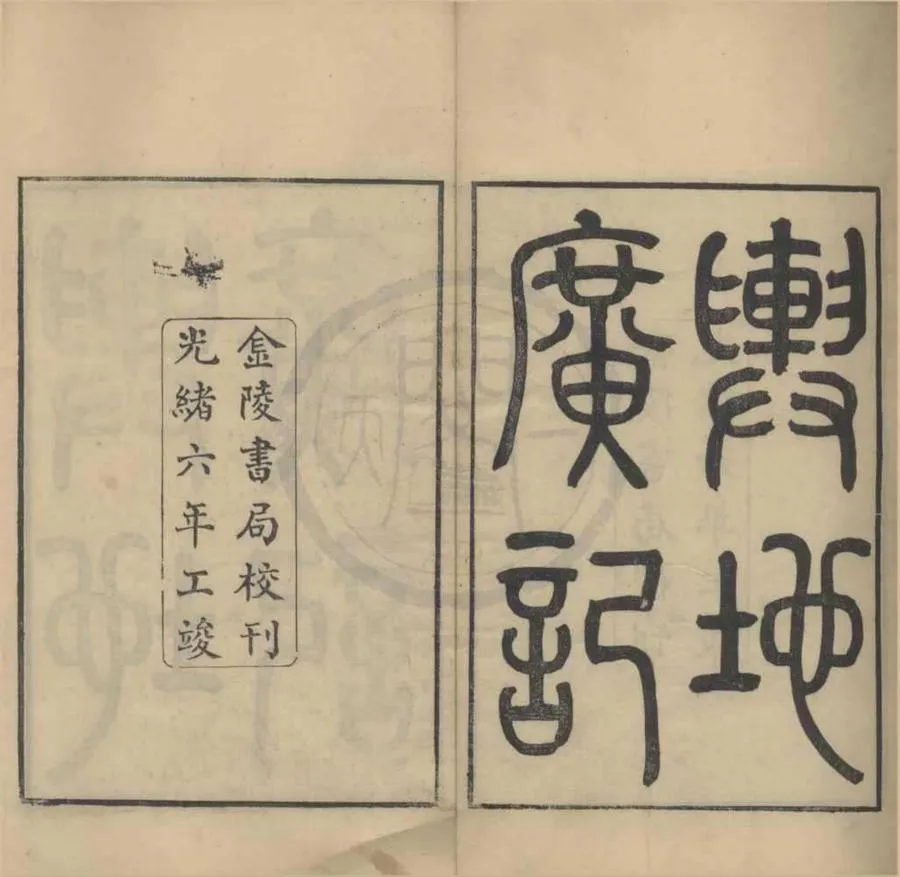 輿地
廣記
金陵書局校刊
光緒六年工竣